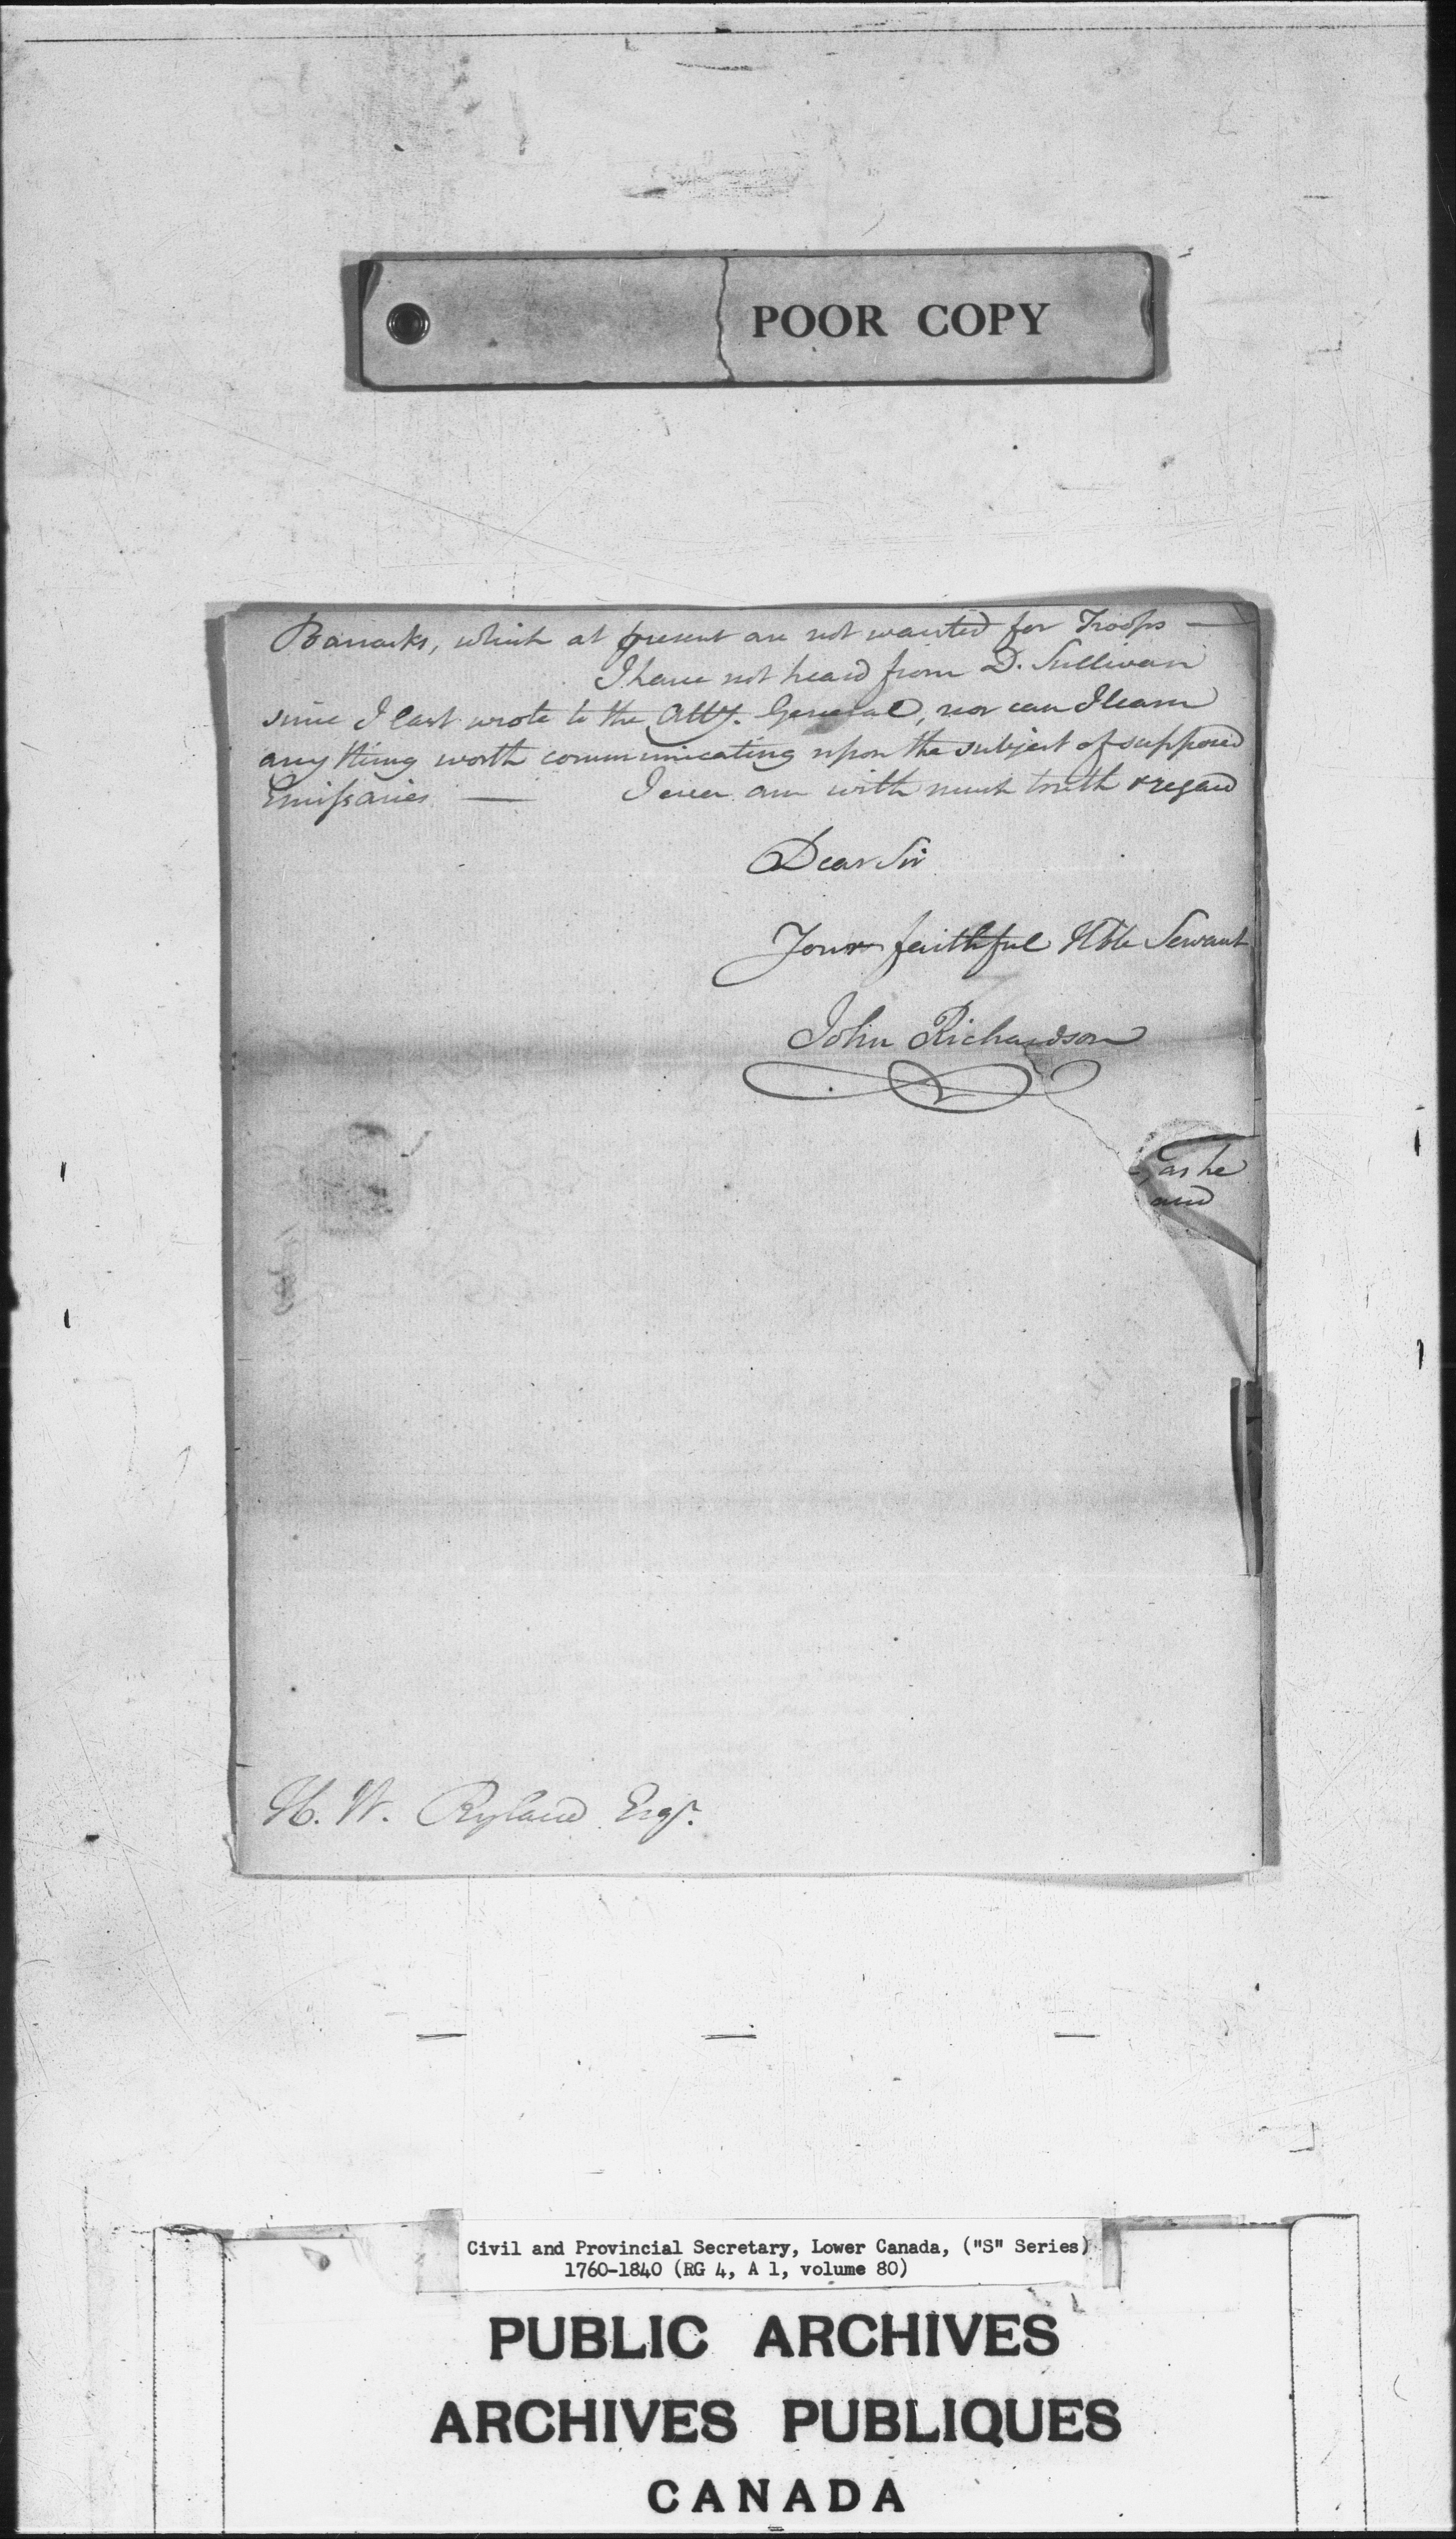 POOR COPY
Barracks, which at present are not wanted for Troops —
I have not heard from D. Sullivan
since I last wrote to the Atty. General, nor can I learn
any thing worth communicating upon the subject of supposed
Emissaries — I ever am with much truth & regard
Dear Sir
Your faithful Hble Servant
John Richardson
as he
and
H. W. Ryland Esqr.
Civil and Provincial Secretary, Lower Canada, ("S" Series)
1760-1840 (RG 4, A 1, volume 80)
PUBLIC ARCHIVES
ARCHIVES PUBLIQUES
CANADA